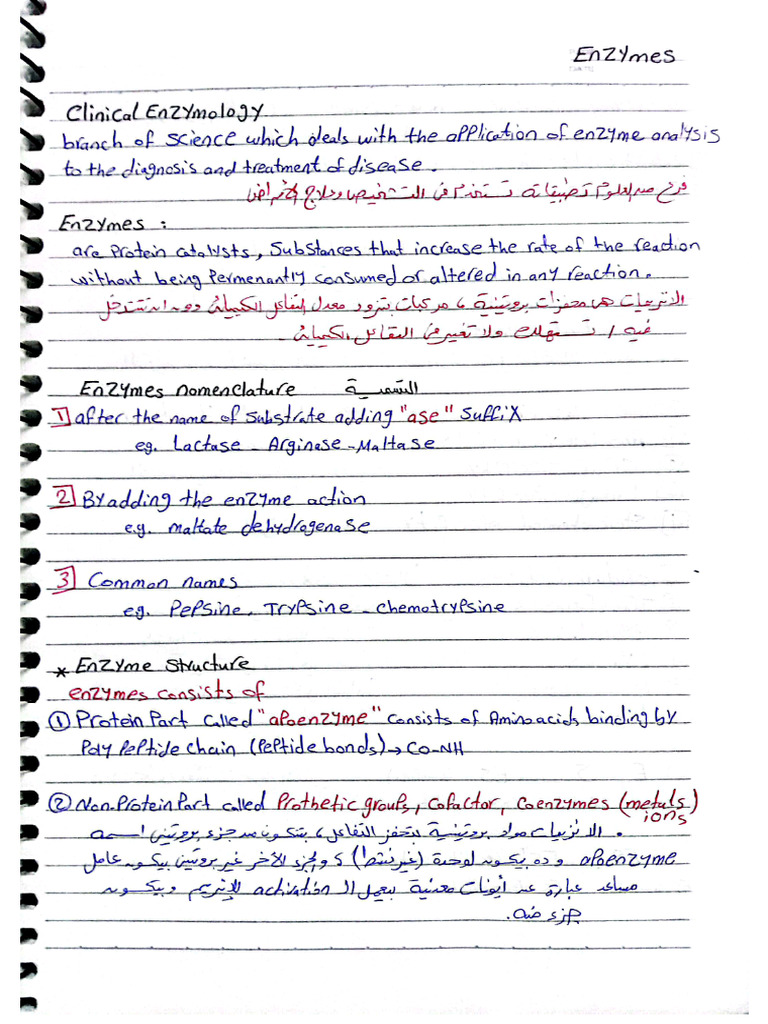 Enzymes
Clinical Enzymology
branch of science which deals with the application of enzyme analysis
to the diagnosis and treatment of disease.
فرع من العلوم تطبيقاته تستخدم في التشخيص وعلاج الأمراض
Enzymes :
are Protein catalysts, Substances that increase the rate of the reaction
without being Permenantly consumed or altered in any reaction.
الانزيمات هي محفزات بروتينية، مركبات تزود معدل التفاعل الكيميائي دون ان تتدخل
فيه / تستهلك ولا تغير في التفاعل الكيميائي.
Enzymes nomenclature التسمية
1 after the name of substrate adding "ase" suffix
eg. Lactase - Arginase - Maltase
2 By adding the enzyme action
e.g. maltate dehydrogenase
3 Common names
eg. Pepsine, Trypsine - chemotrypsine
* Enzyme Structure
enzymes consists of
① Protein Part called "apoenzyme" consists of Amino acids binding by
Poly Peptide chain (Peptide bonds) → CO-NH
② Non-Protein Part called Prothetic groups, Cofactor, Coenzymes (metals
ions)
. الانزيمات مواد بروتينية بتحفز التفاعل، بتتكون من جزء بروتيني اسمه
apoenzyme وده بيكون لوحده (غير نشط) و الجزء الآخر غير بروتين بيكون عامل
مساعد عبارة عن أيونات معدنية بيعمل ال activation للإنزيم وبيكون
جزء منه.